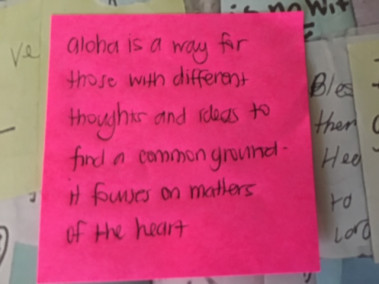 is no wit
ve
aloha is a way for
those with different
thoughts and ideas to
find a common ground.
it focuses on matters
of the heart
Bles
then
Hea
to
Lord